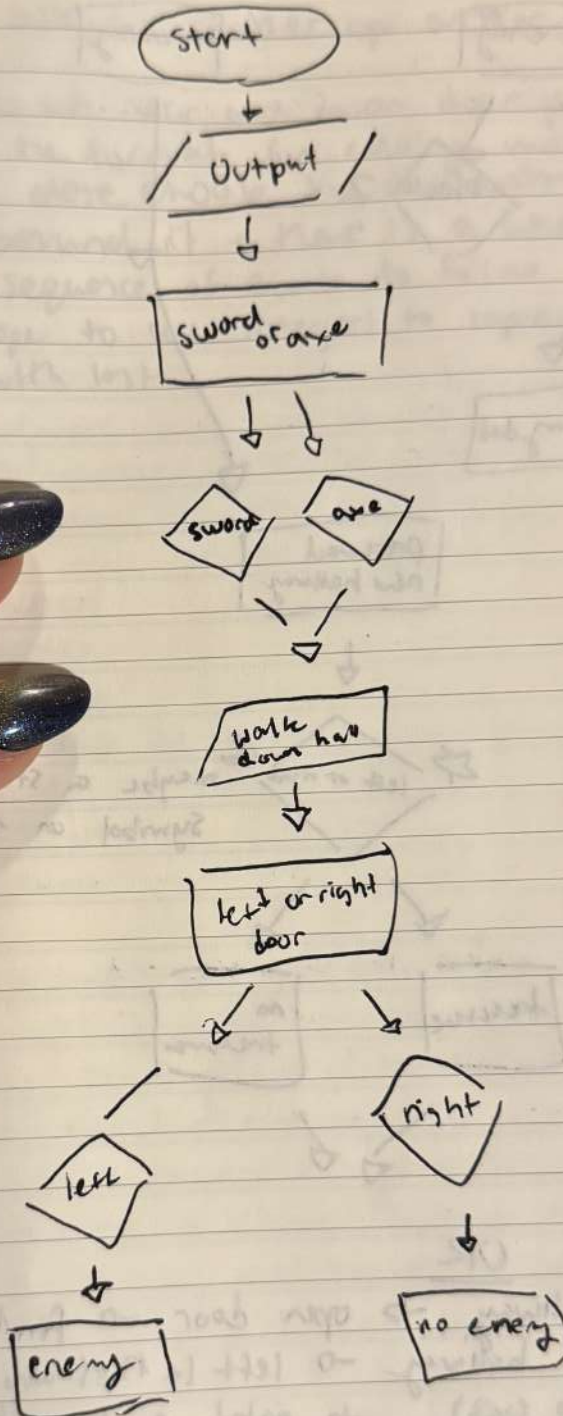 start
Output
sword
or axe
sword
axe
walk
down hall
left or right
door
right
left
no enemy
enemy